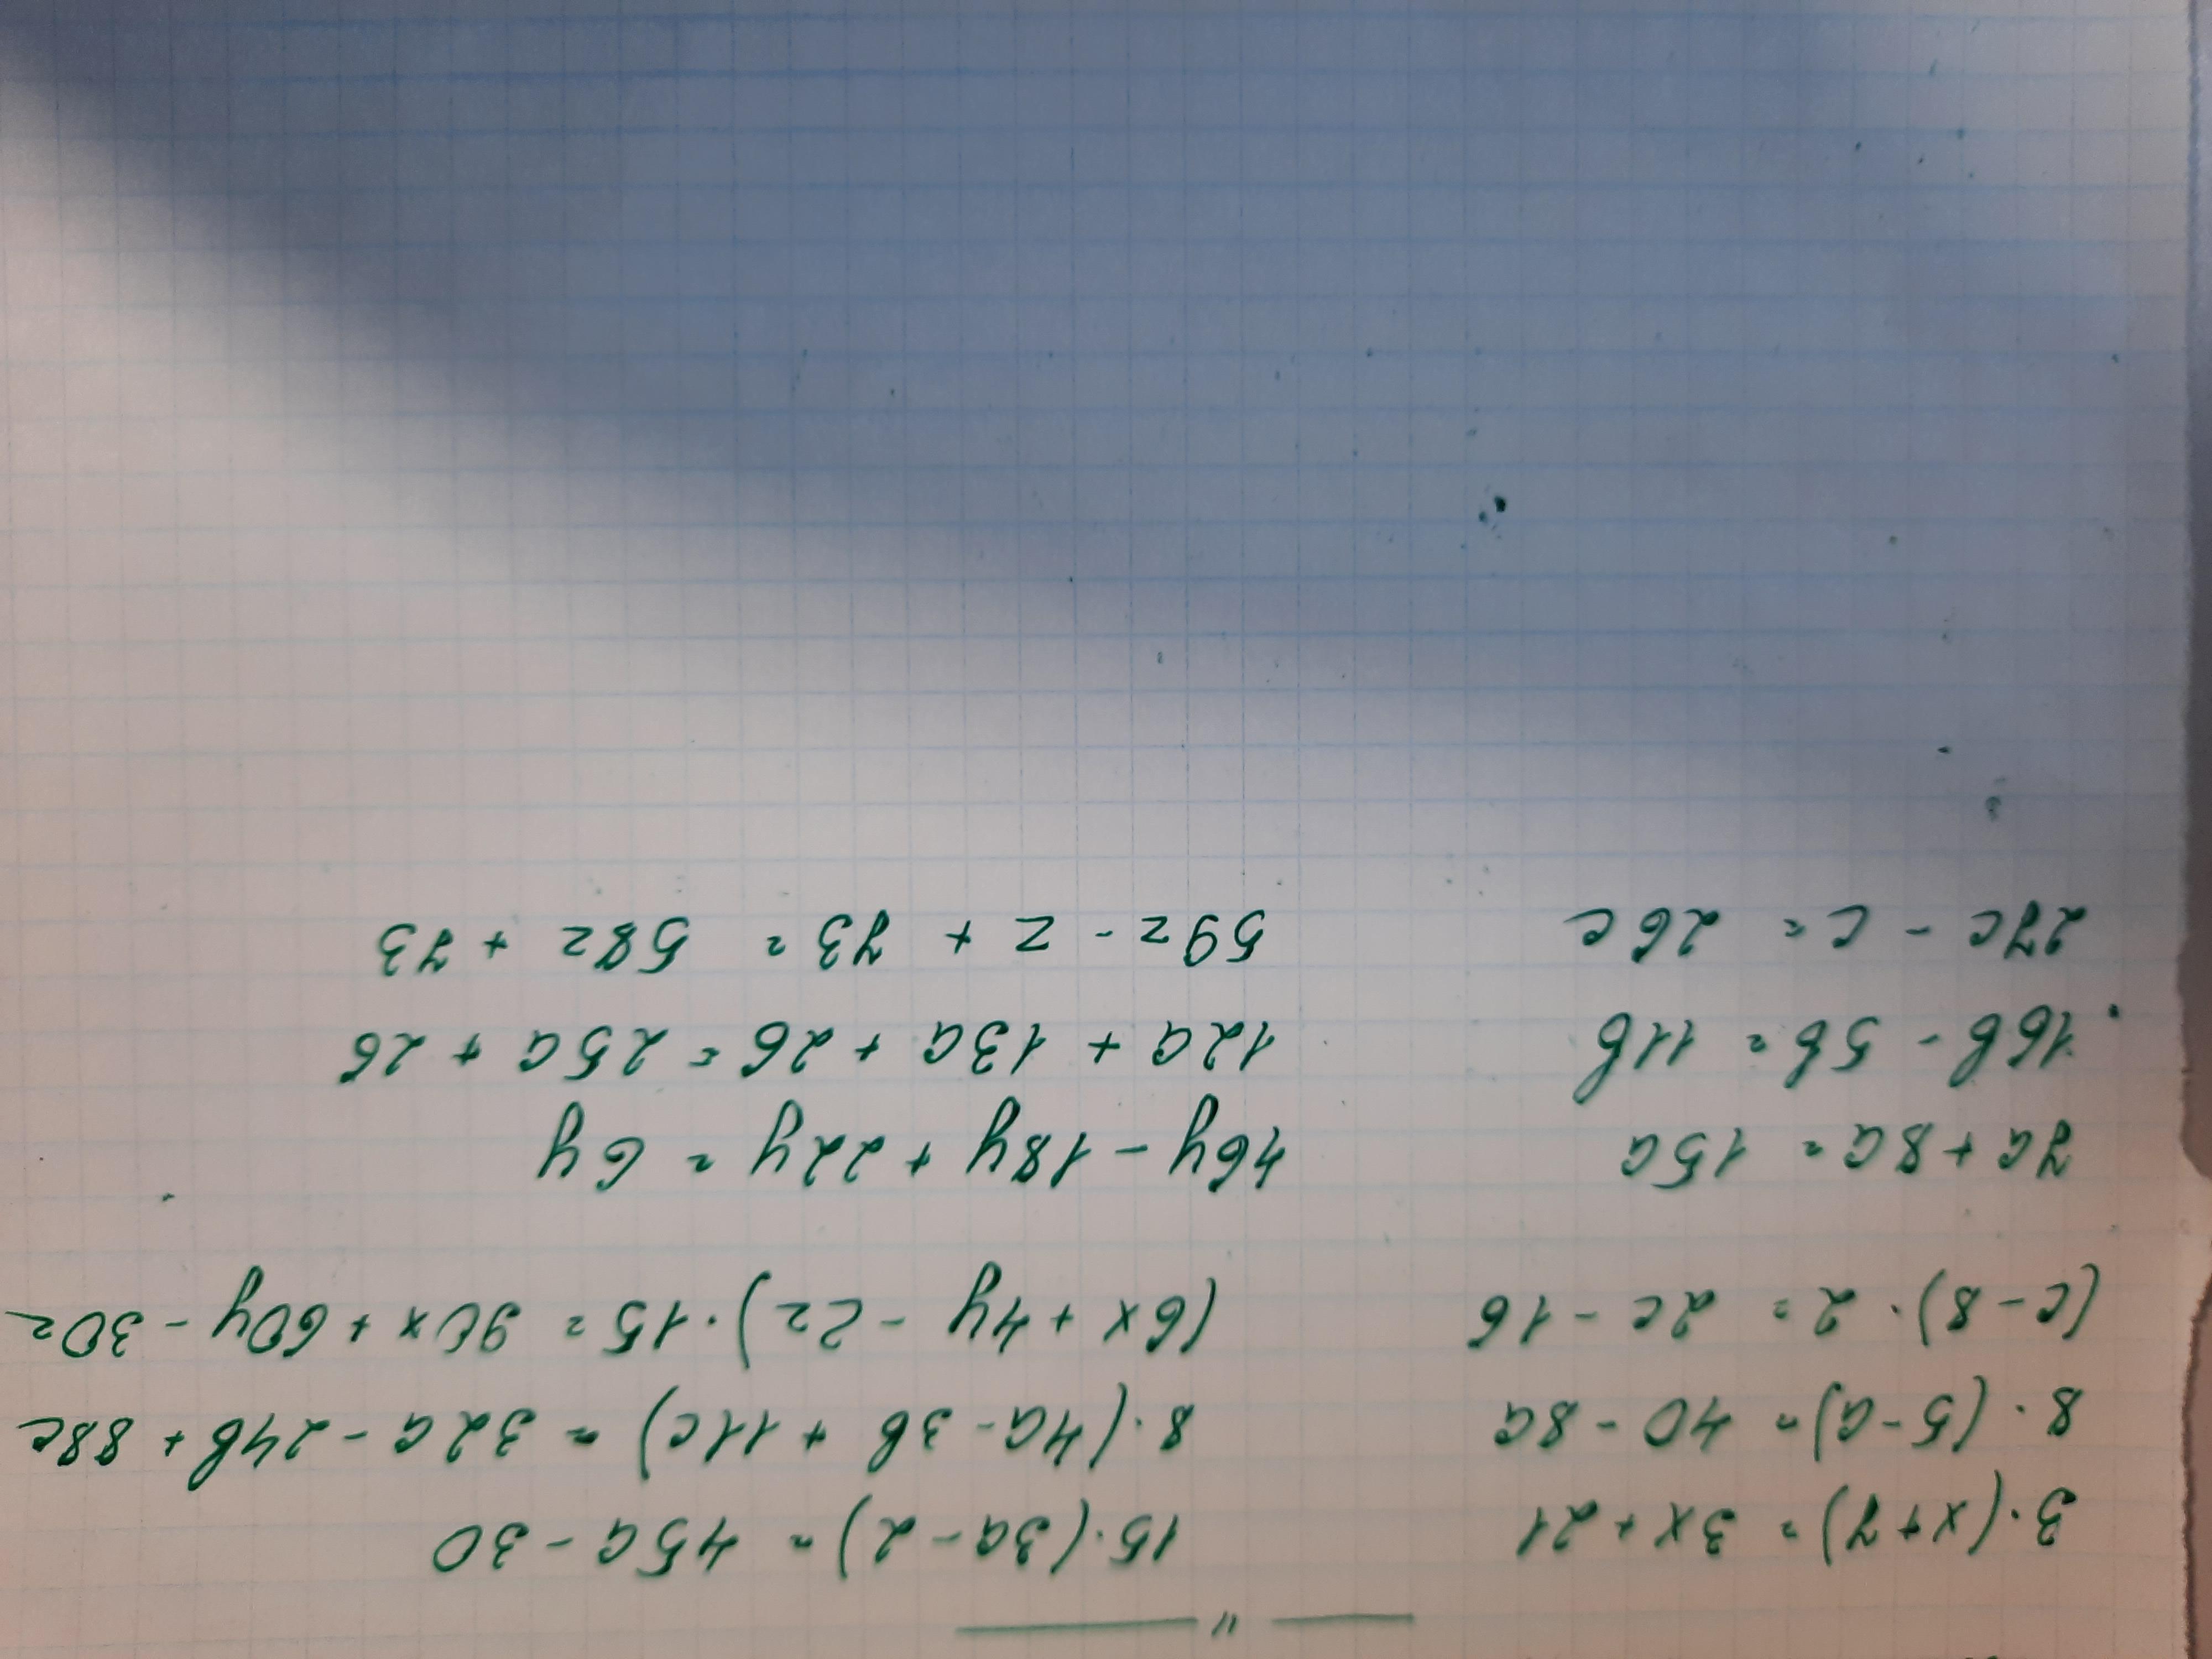 — " —
3·(x+7)= 3x+21 15·(3a-2)= 45a-30
8·(5-a)= 40-8a 8·(4a-3b+11c)= 32a-24b+88c
(c-8)·2= 2c-16 (6x+4y-2z)·15= 90x+60y-30z
7a+8a= 15a 46y-18y+22y= 6y
16b-5b= 11b 12a+13a+26= 25a+26
27c-c= 26c 59z-z+73= 58z+73